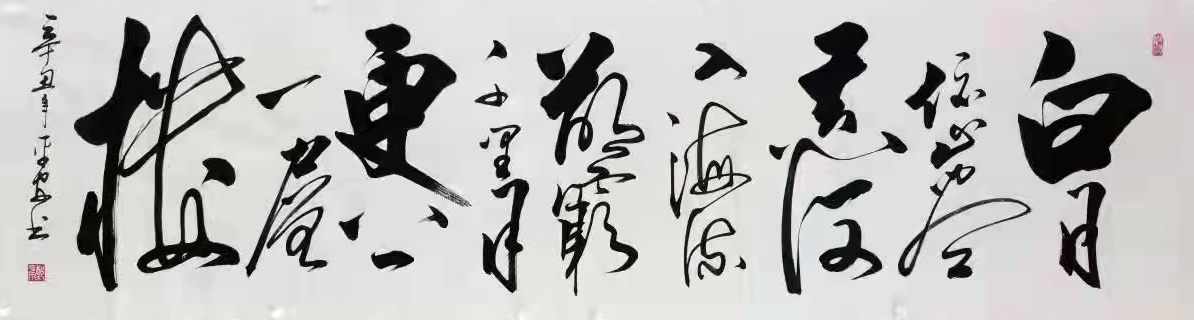 白日
依山尽
黄河
入海流
欲窮
千里目
更上
一層
楼
辛丑年 书